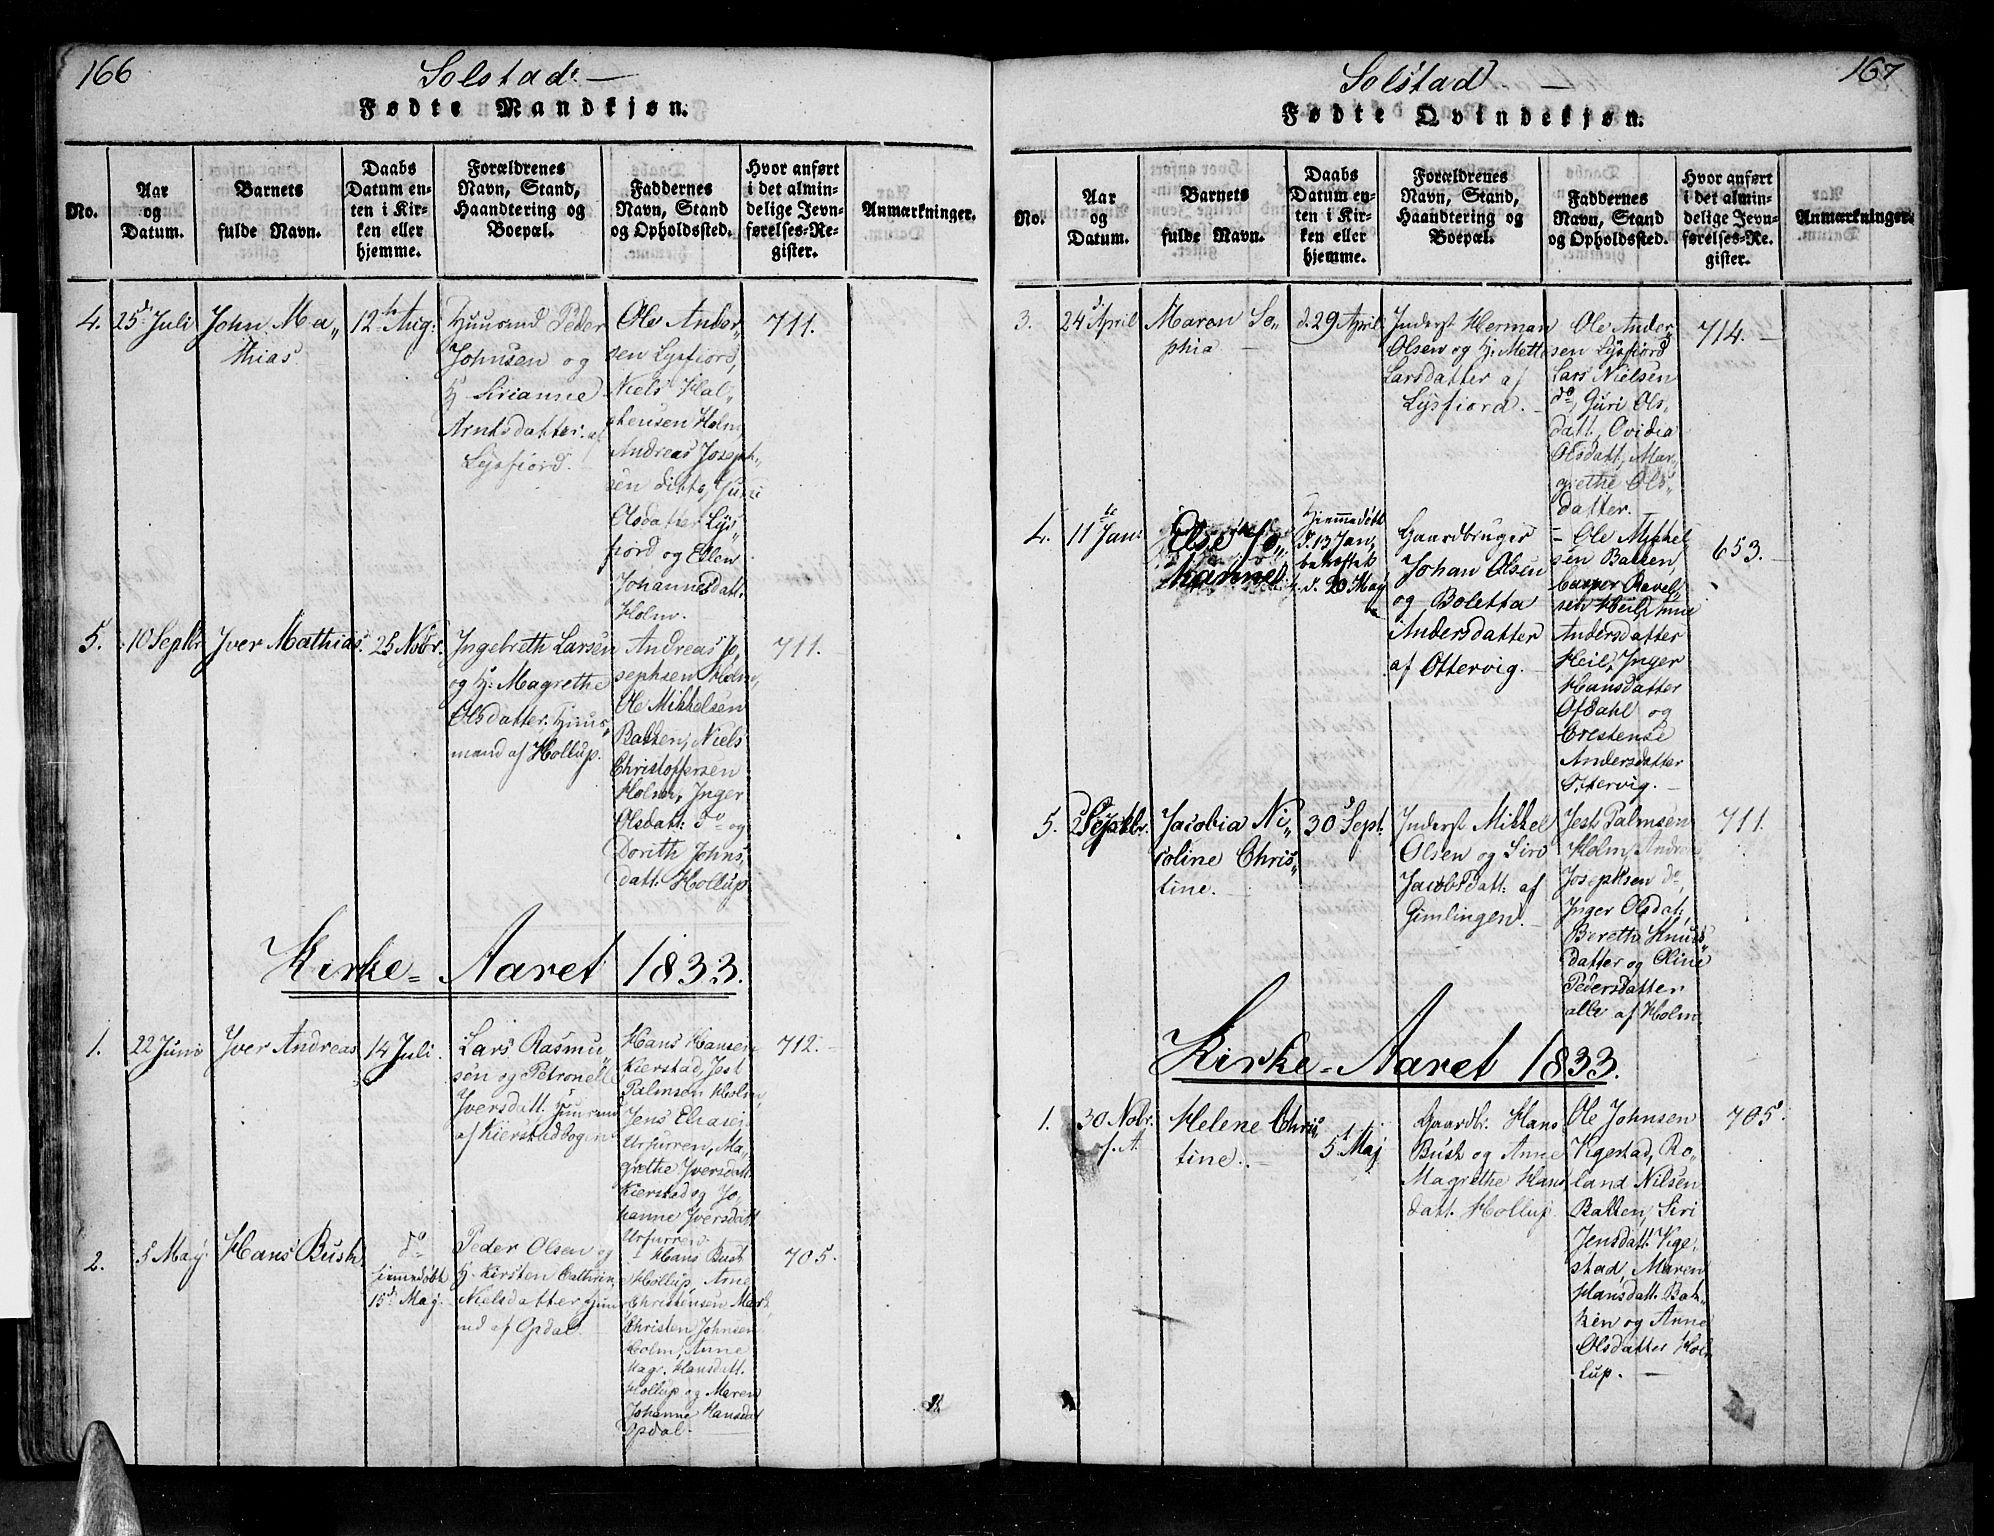 166
Solstad. —
Fødte Mandkjøn.
No.
Aar
og
Datum.
Barnets
fulde Navn.
Daabs
Datum en-
ten i Kir-
ken eller
hjemme.
Forældrenes
Navn, Stand,
Haandtering og
Boepæl.
Faddernes
Navn, Stand
og Opholdssted.
Hvor anført
i det almin-
delige Jevn-
førelses-Re-
gister.
Anmærkninger.
4.
25d Juli
John Ma„
thias.
12te Aug.
Huusmd Peder
Johnsen og
H. Sirianne
Arntsdatter af
Lysfiord.
Ole Ander„
sen Lysfiord,
Niels Hal„
stensen Holm,
Andreas Joseph„
sen ditto, Guri
Olsdatter Lys„
fiord og Ellen
Johannesdatt.
Holm.
711.
5.
10 Septbr
Iver Mathias.
25 Nobr.
Ingebreth Larsen
og H. Magrethe
Olsdatter. Huus„
mand af Hollup.
Andreas Jo„
sephsen Holm,
Ole Mikkelsen
Batten, Niels
Christoffersen
Holm, Inger
Olsdatt: do og
Dorith Johns„
datt: Hollup
711.
Kirke-Aaret 1833.
1.
22 Juni
Iver Andreas
14 Juli.
Lars Rasmu„
sen og Petronelle
Iversdatt. Huusmd
af Kierstadbogen
Hans Hansen
Kierstad, Jest
Palmsen Holm,
Jens Eliasen
Urfurren, Ma„
grethe Iversdatt
Kierstad og Jo„
hanne Iversdatt
Urfurren.
712.
2.
5 May
Hans Bush.
do
hiemedøbt
15d May.
Peder Olsen og
H. Kirsten Cathrin„
Nielsdatter Huus
md af Opdal.
Hans Bush
Hollup, Arne
Christensen Mark,
Christen Johnsen
Holm, Anne
Magr. Hansdatt.
Hollup og Maren
Johanne Hansdat
Opdal.
705.
167
Solstad —
Fødte Qvindekjøn.
No.
Aar
og
Datum.
Barnets
fulde Navn.
Daabs
Datum en-
ten i Kir-
ken eller
hjemme.
Forældrenes
Navn, Stand,
Haandtering og
Boepæl.
Faddernes
Navn, Stand
og Opholdssted.
Hvor anført
i det almin-
delige Jevn-
førelses-Re-
gister.
Anmærkninger.
3.
24d April
Maren So„
phia
d. 29 April.
Inderst Herman
Olsen og H. Mette
Larsdatter af
Lysfiord.
Ole Ander„
sen Lysfiord
Lars Nielsen
do, Guri Ols„
datt, Ovidia
Olsdatt, Mar„
grethe Ols„
datter.
714.
4.
11te Jan:
Else Jo„
hanne
Hiemmedøbt
d. 13 Jan,
bekræftet
d. 20 May
Gaardbruger
Johan Olsen
og Boletta
Andersdatter
af Ottervig.
Ole Mikkel
sen Batten,
Casper Pavel„
sen Heil,
Andersdatter
Heil, Inger
Hansdatter
Ofdahl og
Crestense
Andersdatter
Ottervig.
653.
5.
Septbr.
Jacobia Ni„
coline Chris„
tine.
30 Sept.
Inderst Mikkel
Olsen og Siri
Jacobsdatt: af
Gimlingen.
Jest Palmsen
Holm, Andreas
Josephsen do,
Inger Olsdat:
Beretha Knuds„
datter og Oline
Pedersdatter
alle af Holm
711.
Kirke-Aaret 1833.
1.
30 Nobr.
f. A.
Helene Chris„
tine.
5d Maj
Gaardbr. Hans
Bush og Anne
Magrethe Hans
datt. Hollup.
Ole Johnsen
Vigestad, Ro„
land Nilsen
Batten, Siri
Jensdatt. Vige„
stad, Maren
Hansdatt. Bat„
ten og Anne
Olsdatter Hol„
lup.
705.